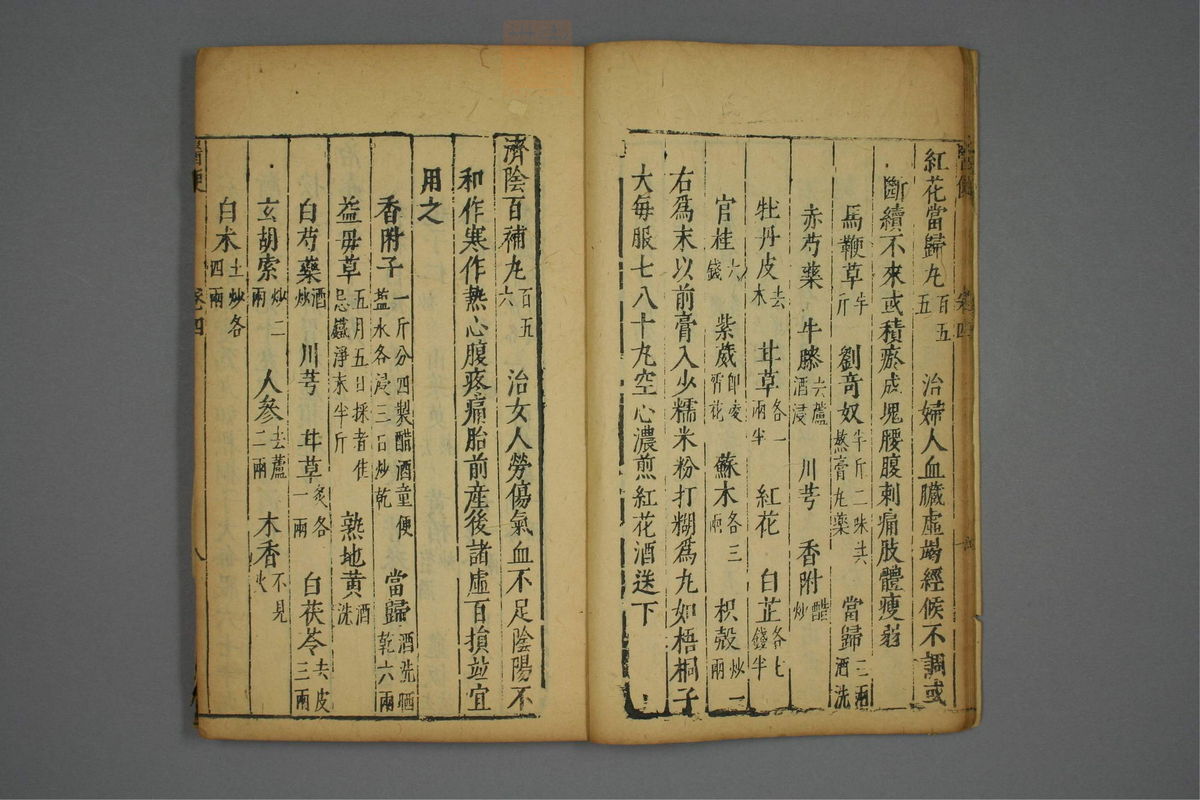 紅花當歸丸百五五 治婦人血臟虛竭經候不調或
斷續不來或積瘀成塊腰腹刺痛肢體瘦弱
馬鞭草半斤 劉竒奴半斤二味共熬膏丸藥 當歸三兩酒洗
赤芍藥 牛膝去蘆酒浸 川芎 香附醋炒
牡丹皮去木 甘草各一兩半 紅花 白芷各七錢半
官桂六錢 紫葳即凌霄花 蘇木各三兩 枳殻炒一兩
右爲末以前膏入少糯米粉打糊爲丸如梧桐子
大每服七八十丸空心濃煎紅花酒送下
濟陰百補丸百五六 治女人勞傷氣血不足陰陽不
和作寒作熱心腹疼痛胎前産後諸虛百損並宜
用之
香附子一斤分四製醋酒童便盐水各浸三石炒乾 當歸酒洗晒乾六兩
益母草五月五日採者佳忌鐵淨末半斤 熟地黄酒洗
白芍藥酒炒 川芎 甘草炙各一兩 白茯苓去皮三兩
玄胡索炒二兩 人參去蘆二兩 木香不見火
白朮土炒各四兩
卷四
八